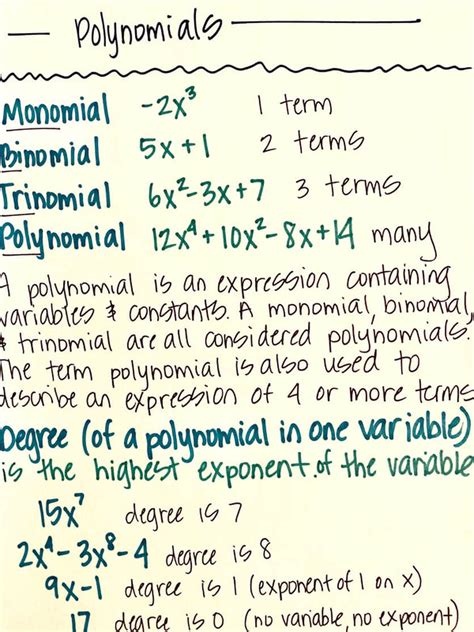 Polynomials
Monomial -2x³ 1 term
Binomial 5x+1 2 terms
Trinomial 6x²-3x+7 3 terms
Polynomial 12x⁴+10x²-8x+14 many
A polynomial is an expression containing
variables & constants. A monomial, binomial,
& trinomial are all considered polynomials.
The term polynomial is also used to
describe an expression of 4 or more terms
Degree (of a polynomial in one variable)
is the highest exponent of the variable
15x⁷ degree is 7
2x⁴-3x⁸-4 degree is 8
9x-1 degree is 1 (exponent of 1 on x)
17 degree is 0 (no variable, no exponent)